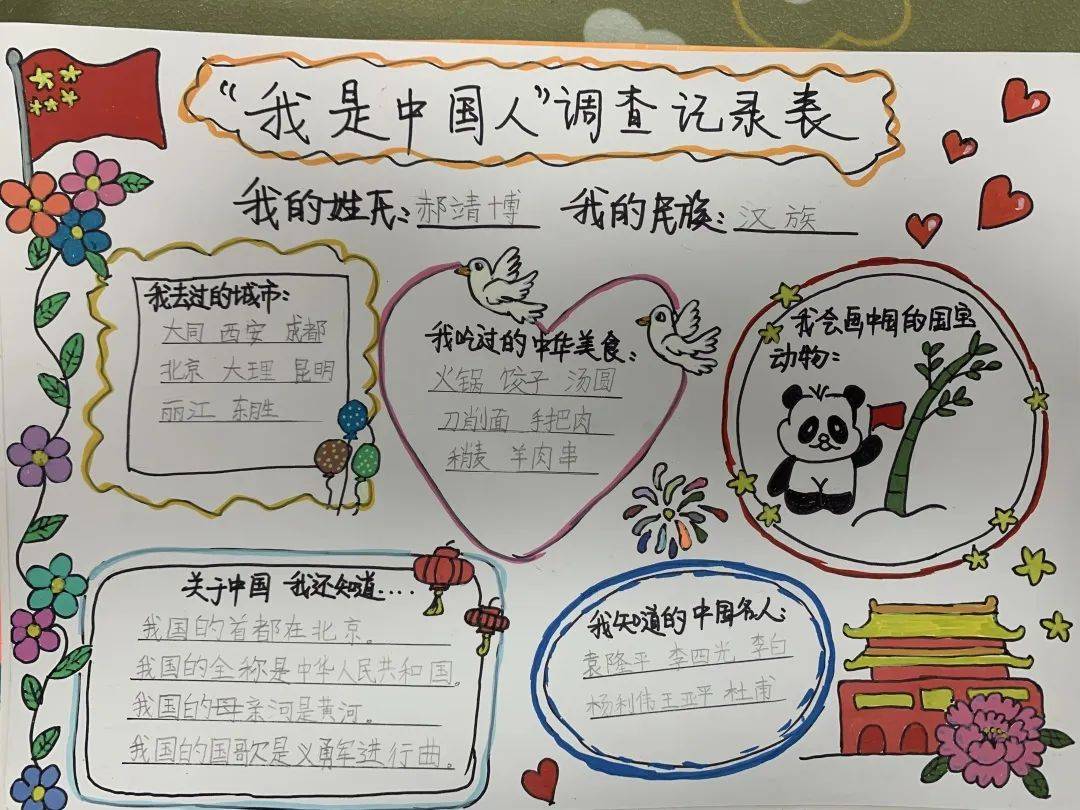 “我是中国人”调查记录表
我的姓氏：郝靖博 我的民族：汉族
我去过的城市：
大同 西安 成都
北京 大理 昆明
丽江 东胜
我吃过的中华美食：
火锅 饺子 汤圆
刀削面 手把肉
稍麦 羊肉串
我会画中国的国宝
动物：
关于中国 我还知道....
我国的首都在北京。
我国的全称是中华人民共和国。
我国的母亲河是黄河。
我国的国歌是义勇军进行曲。
我知道的中国名人：
袁隆平 李四光 李白
杨利伟 王亚平 杜甫